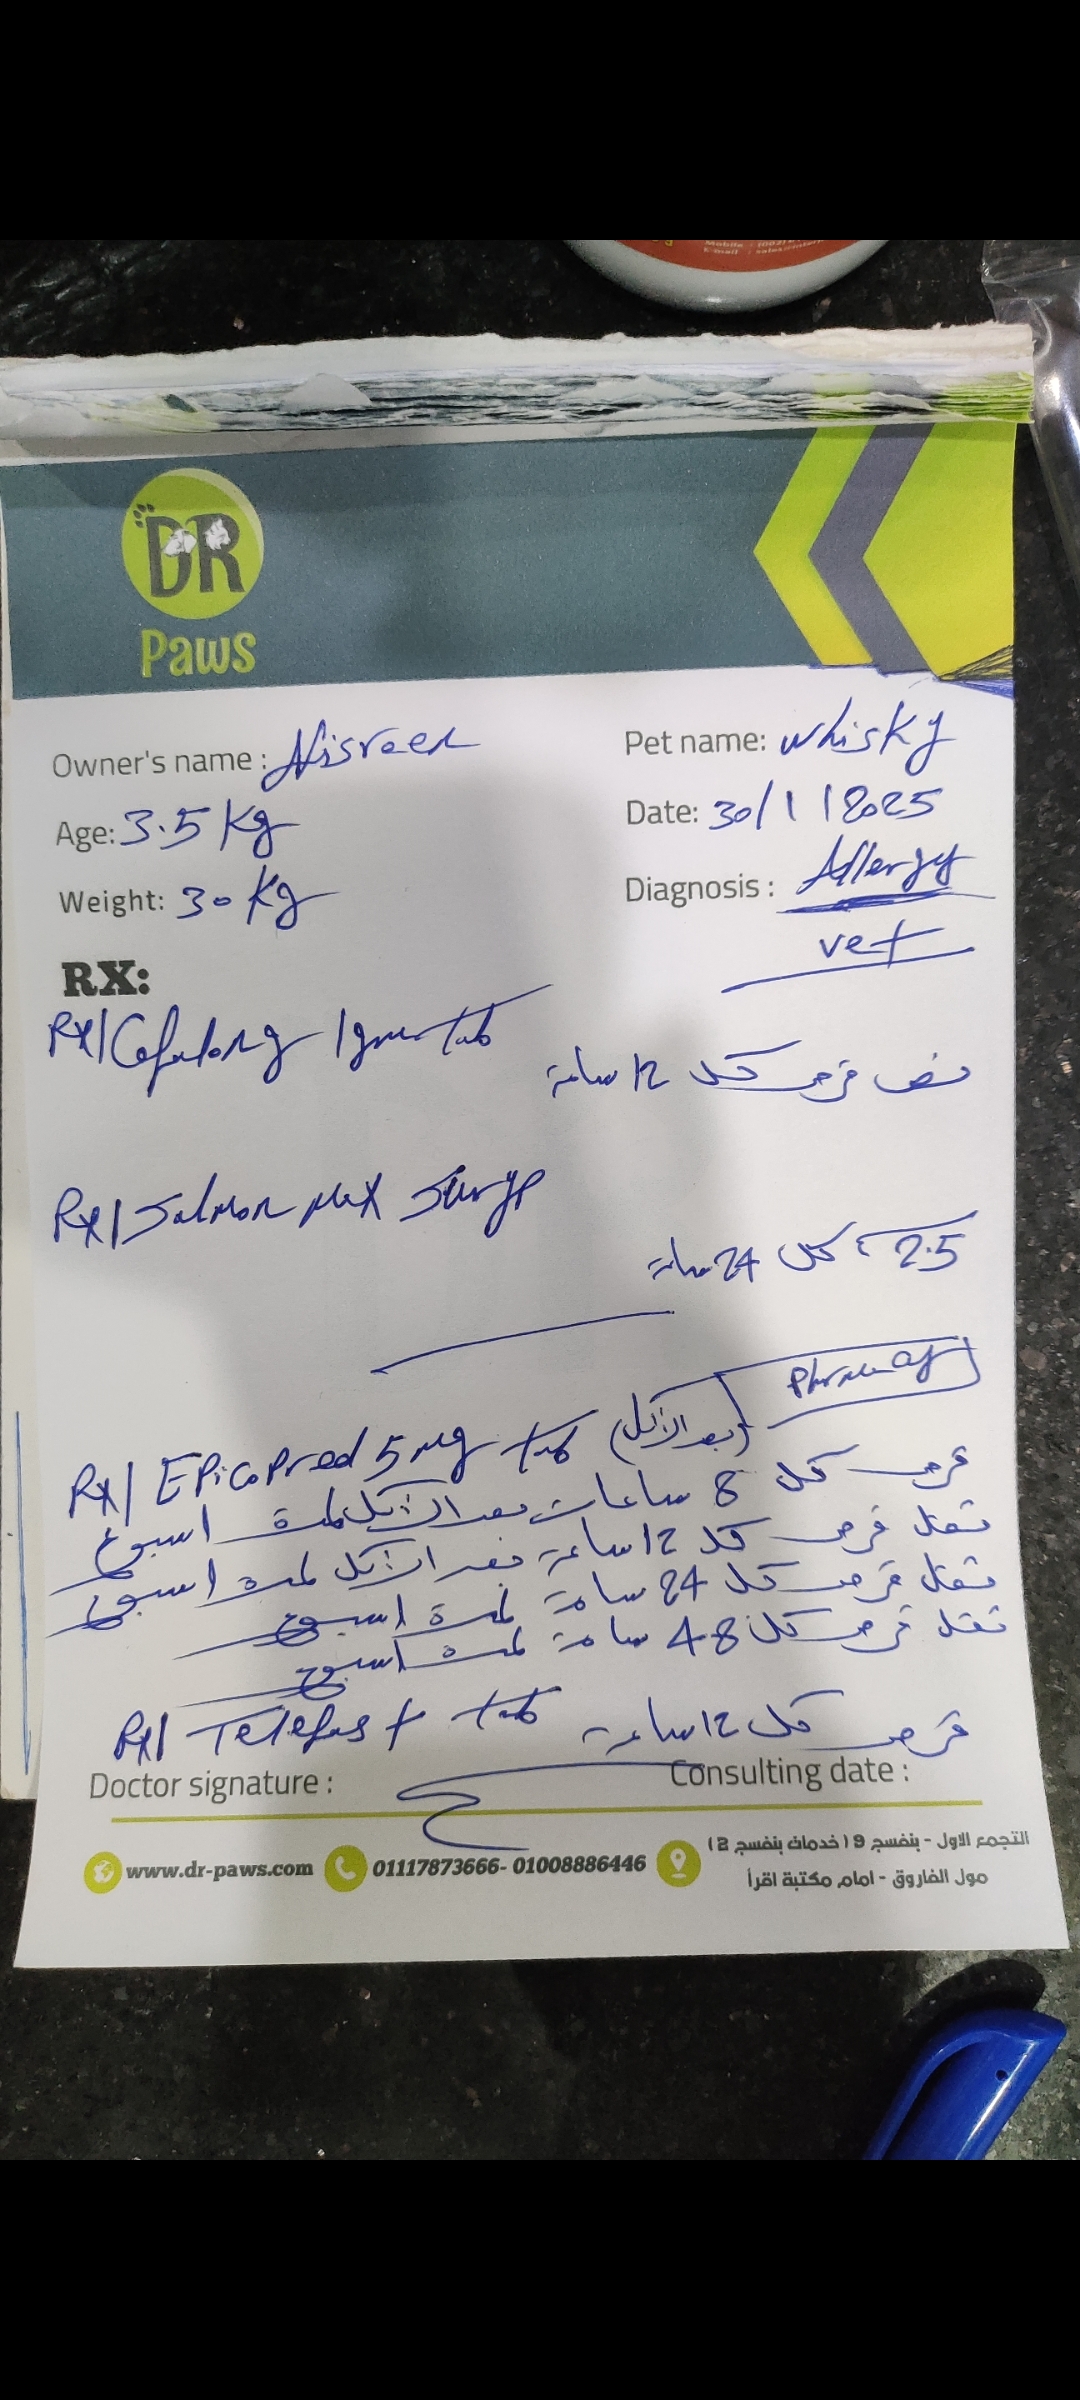 DR
Paws
Owner's name : Nisreen
Pet name: Whisky
Age: 3.5 Kg
Date: 30/1/2025
Weight: 30 Kg
Diagnosis : Allergy
vet
RX:
RX/ Cefalong 1gm tab
نص قرص كل 12 ساعة
RX/ Salmon max
2.5 كل 24 ساعة
Pharmacy
RX/ EPicoPred 5 mg tab (بعد الاكل)
قرص كل 8 ساعات بعد الاكل لمدة اسبوع
تقلل قرص كل 12 ساعة بعد الاكل لمدة اسبوع
تقلل قرص كل 24 ساعة لمدة اسبوع
تقلل قرص كل 48 ساعة لمدة اسبوع
RX/ Telefast tab قرص كل 12 ساعة
Doctor signature :
Consulting date :
www.dr-paws.com
01117873666- 01008886446
التجمع الاول - بنفسج 9 (خدمات بنفسج 2)
مول الفاروق - امام مكتبة اقرأ